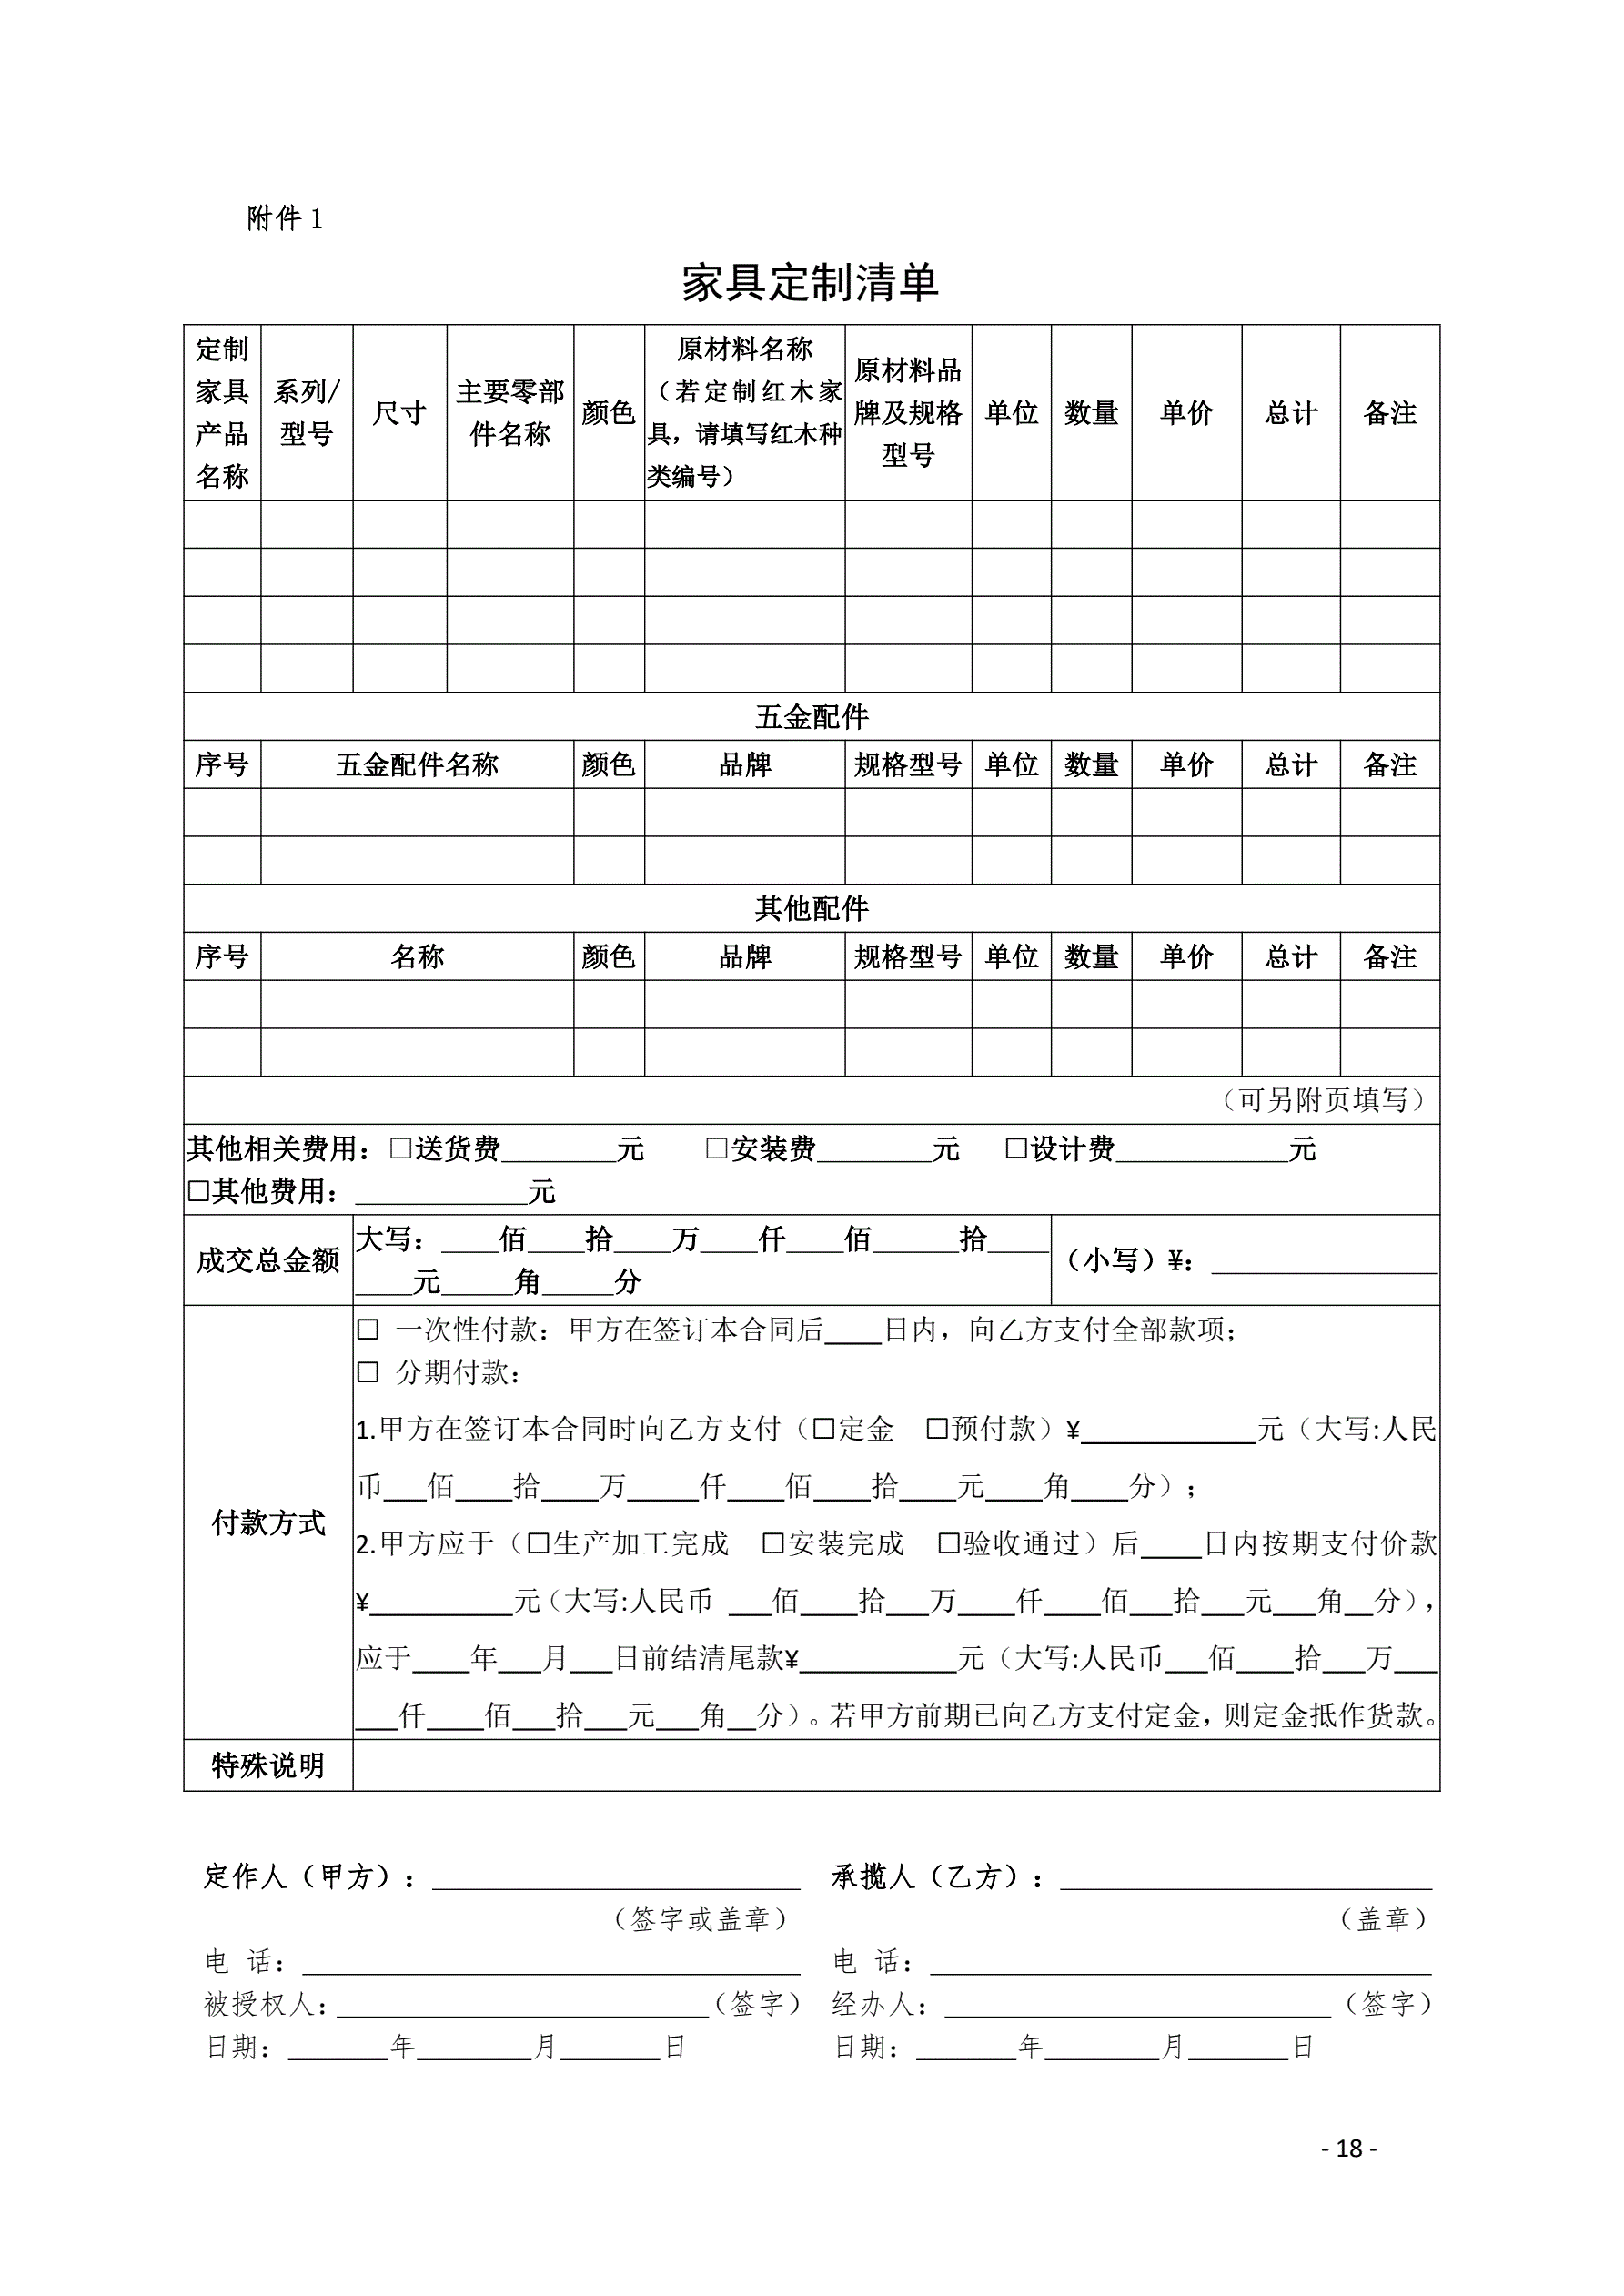 附件 1
家具定制清单
定制家具产品名称 系列/型号 尺寸 主要零部件名称 颜色 原材料名称（若定制红木家具，请填写红木种类编号） 原材料品牌及规格型号 单位 数量 单价 总计 备注
五金配件
序号 五金配件名称 颜色 品牌 规格型号 单位 数量 单价 总计 备注
其他配件
序号 名称 颜色 品牌 规格型号 单位 数量 单价 总计 备注
（可另附页填写）
其他相关费用：□送货费________元 □安装费________元 □设计费____________元
□其他费用：____________元
成交总金额 大写：____佰____拾____万____仟____佰______拾____
____元_____角_____分 （小写）¥：________________
付款方式
□ 一次性付款：甲方在签订本合同后____日内，向乙方支付全部款项；
□ 分期付款：
1.甲方在签订本合同时向乙方支付（□定金 □预付款）¥____________元（大写:人民
币___佰____拾____万_____仟____佰____拾____元____角____分）；
2.甲方应于（□生产加工完成 □安装完成 □验收通过）后____日内按期支付价款
¥__________元（大写:人民币 ___佰____拾___万____仟____佰___拾___元___角__分），
应于____年___月___日前结清尾款¥___________元（大写:人民币___佰____拾___万___
___仟____佰___拾___元___角__分）。若甲方前期已向乙方支付定金，则定金抵作货款。
特殊说明
定作人（甲方）：__________________________ 承揽人（乙方）：__________________________
（签字或盖章） （盖章）
电 话：___________________________________ 电 话：___________________________________
被授权人：__________________________（签字） 经办人：___________________________（签字）
日期：_______年________月_______日 日期：_______年________月_______日
- 18 -